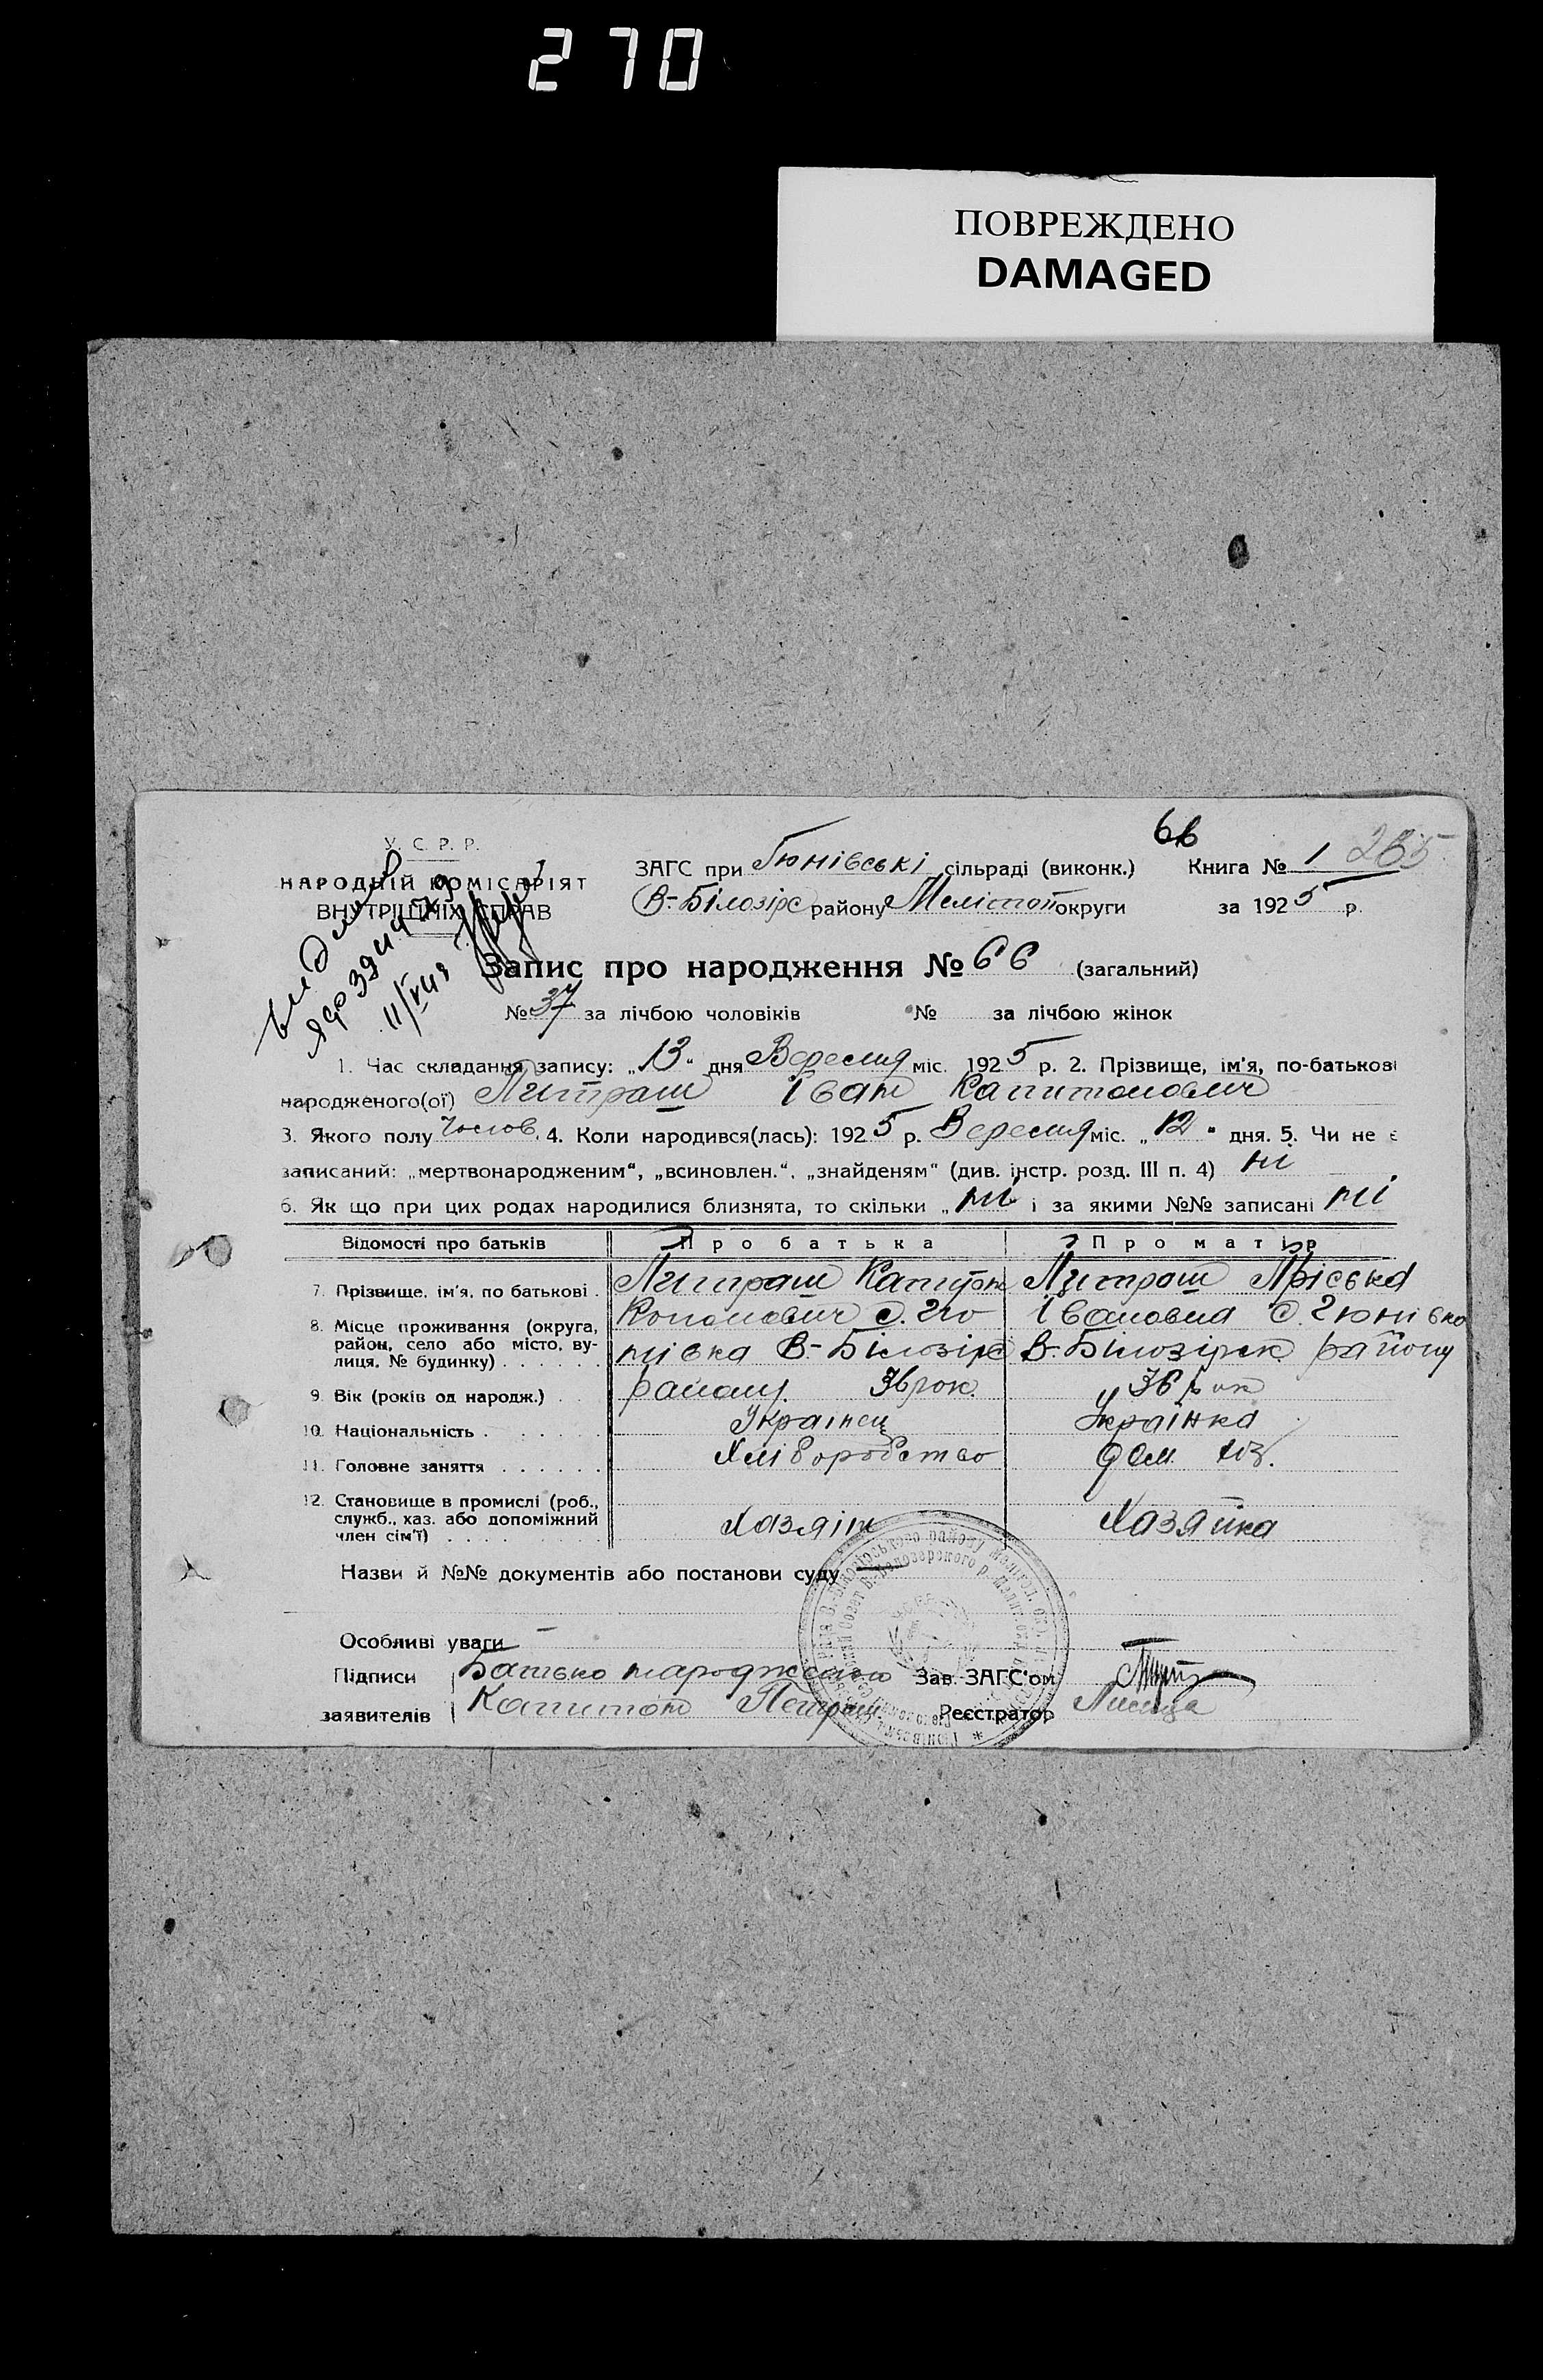 270
ПОВРЕЖДЕНО
DAMAGED
У. С. Р. Р.
НАРОДНІЙ КОМІСАРІЯТ
ВНУТРІШНІХ СПРАВ
66
ЗАГС при Гюнівські сільраді (виконк.) Книга № 1 265
В-Білозірс району Меліттоп округи за 1925 р.
Запис про народження № 66 (загальний)
№ 37 за лічбою чоловіків № за лічбою жінок
1. Час складання запису: „13“ дня Вересня міс. 1925 р. 2. Прізвище, ім'я, по-батькові
народженого(ої) Литраш Іван Капитонович
3. Якого полу Чолов. 4. Коли народився(лась): 1925 р. Вересня міс. „12“ дня. 5. Чи не є
записаний: „мертвонародженим“, „всиновлен.“, „знайденям“ (див. інстр. розд. III п. 4) ні
6. Як що при цих родах народилися близнята, то скільки „ні і за якими №№ записані ні
Відомості про батьків Про батька Про матір
7. Прізвище, ім'я, по батькові . Литраш Капитон Литраш Пріська
8. Місце проживання (округа, район, село або місто, вулиця, № будинку) . . . . . . Кононович с. Гюнівка В-Білозірс району Івановна с. Гюнівка В-Білозірск району
9. Вік (років од народж.) . . 36 рок. 36 рок
10. Національність . . . . . . Українец Українка
11. Головне заняття . . . . . . Хліборобство дом. хоз.
12. Становище в промислі (роб., служб., хаз. або допоміжний член сім'ї) . . . . Хазяін Хазяйка
Назви й №№ документів або постанови суду —
Особливі уваги —
Підписи Батько народженого Зав. ЗАГС'ом
заявителів Капитон Петраш Реєстратор Лисиця